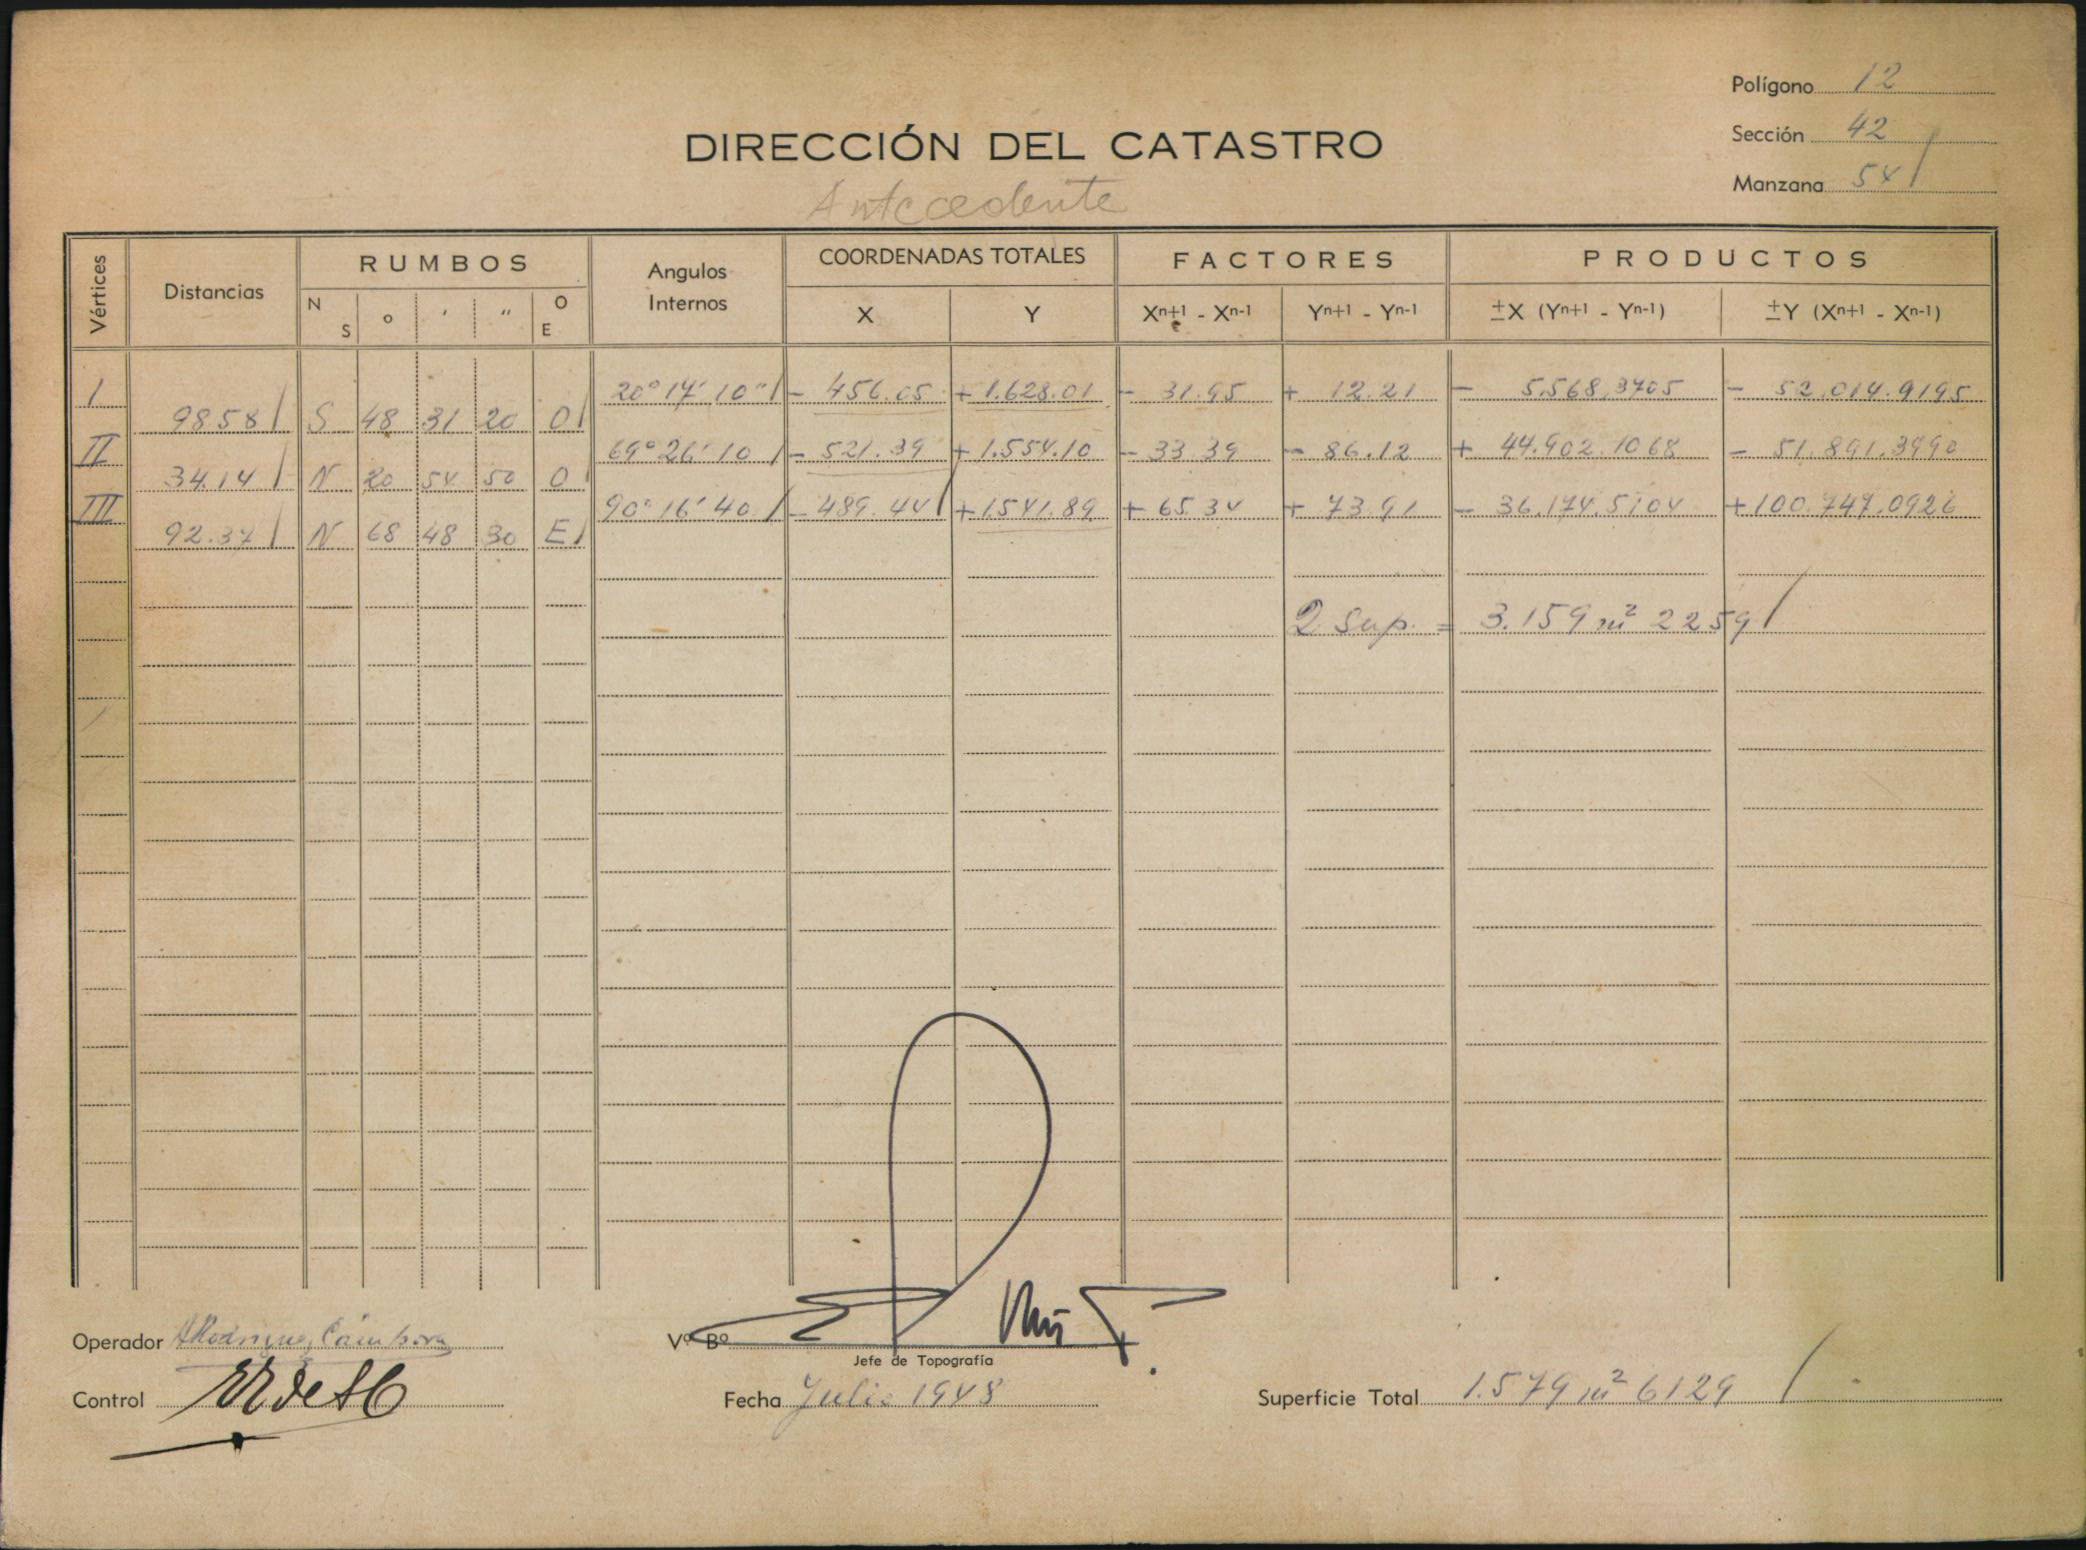 Polígono 12
DIRECCIÓN DEL CATASTRO
Sección 42
Manzana 54
Antecedente
Vértices Distancias RUMBOS Angulos Internos COORDENADAS TOTALES FACTORES PRODUCTOS
N S ° ' " O E X Y Xn+1 - Xn-1 Yn+1 - Yn-1 ±X (Yn+1 - Yn-1) ±Y (Xn+1 - Xn-1)
I 20° 17' 10" - 456.05 + 1.628.01 - 31.95 + 12.21 - 5.568,3705 - 52.014.9195
98.58 S 48 31 20 O
II 69° 26' 10 - 521.39 + 1.554.10 - 33 39 - 86.12 + 44.902.1068 - 51.891.3990
34.14 N 20 54 50 O
III 90° 16' 40 - 489.44 + 1541.89 + 65 34 + 73 91 - 36.174.5104 + 100.747.0926
92.37 N 68 48 30 E
2 Sup. = 3.159 m² 2259
Operador ARodriguez Cámpora
Vº Bº
Jefe de Topografía
Control
Fecha Julio 1948
Superficie Total 1.579 m² 6129